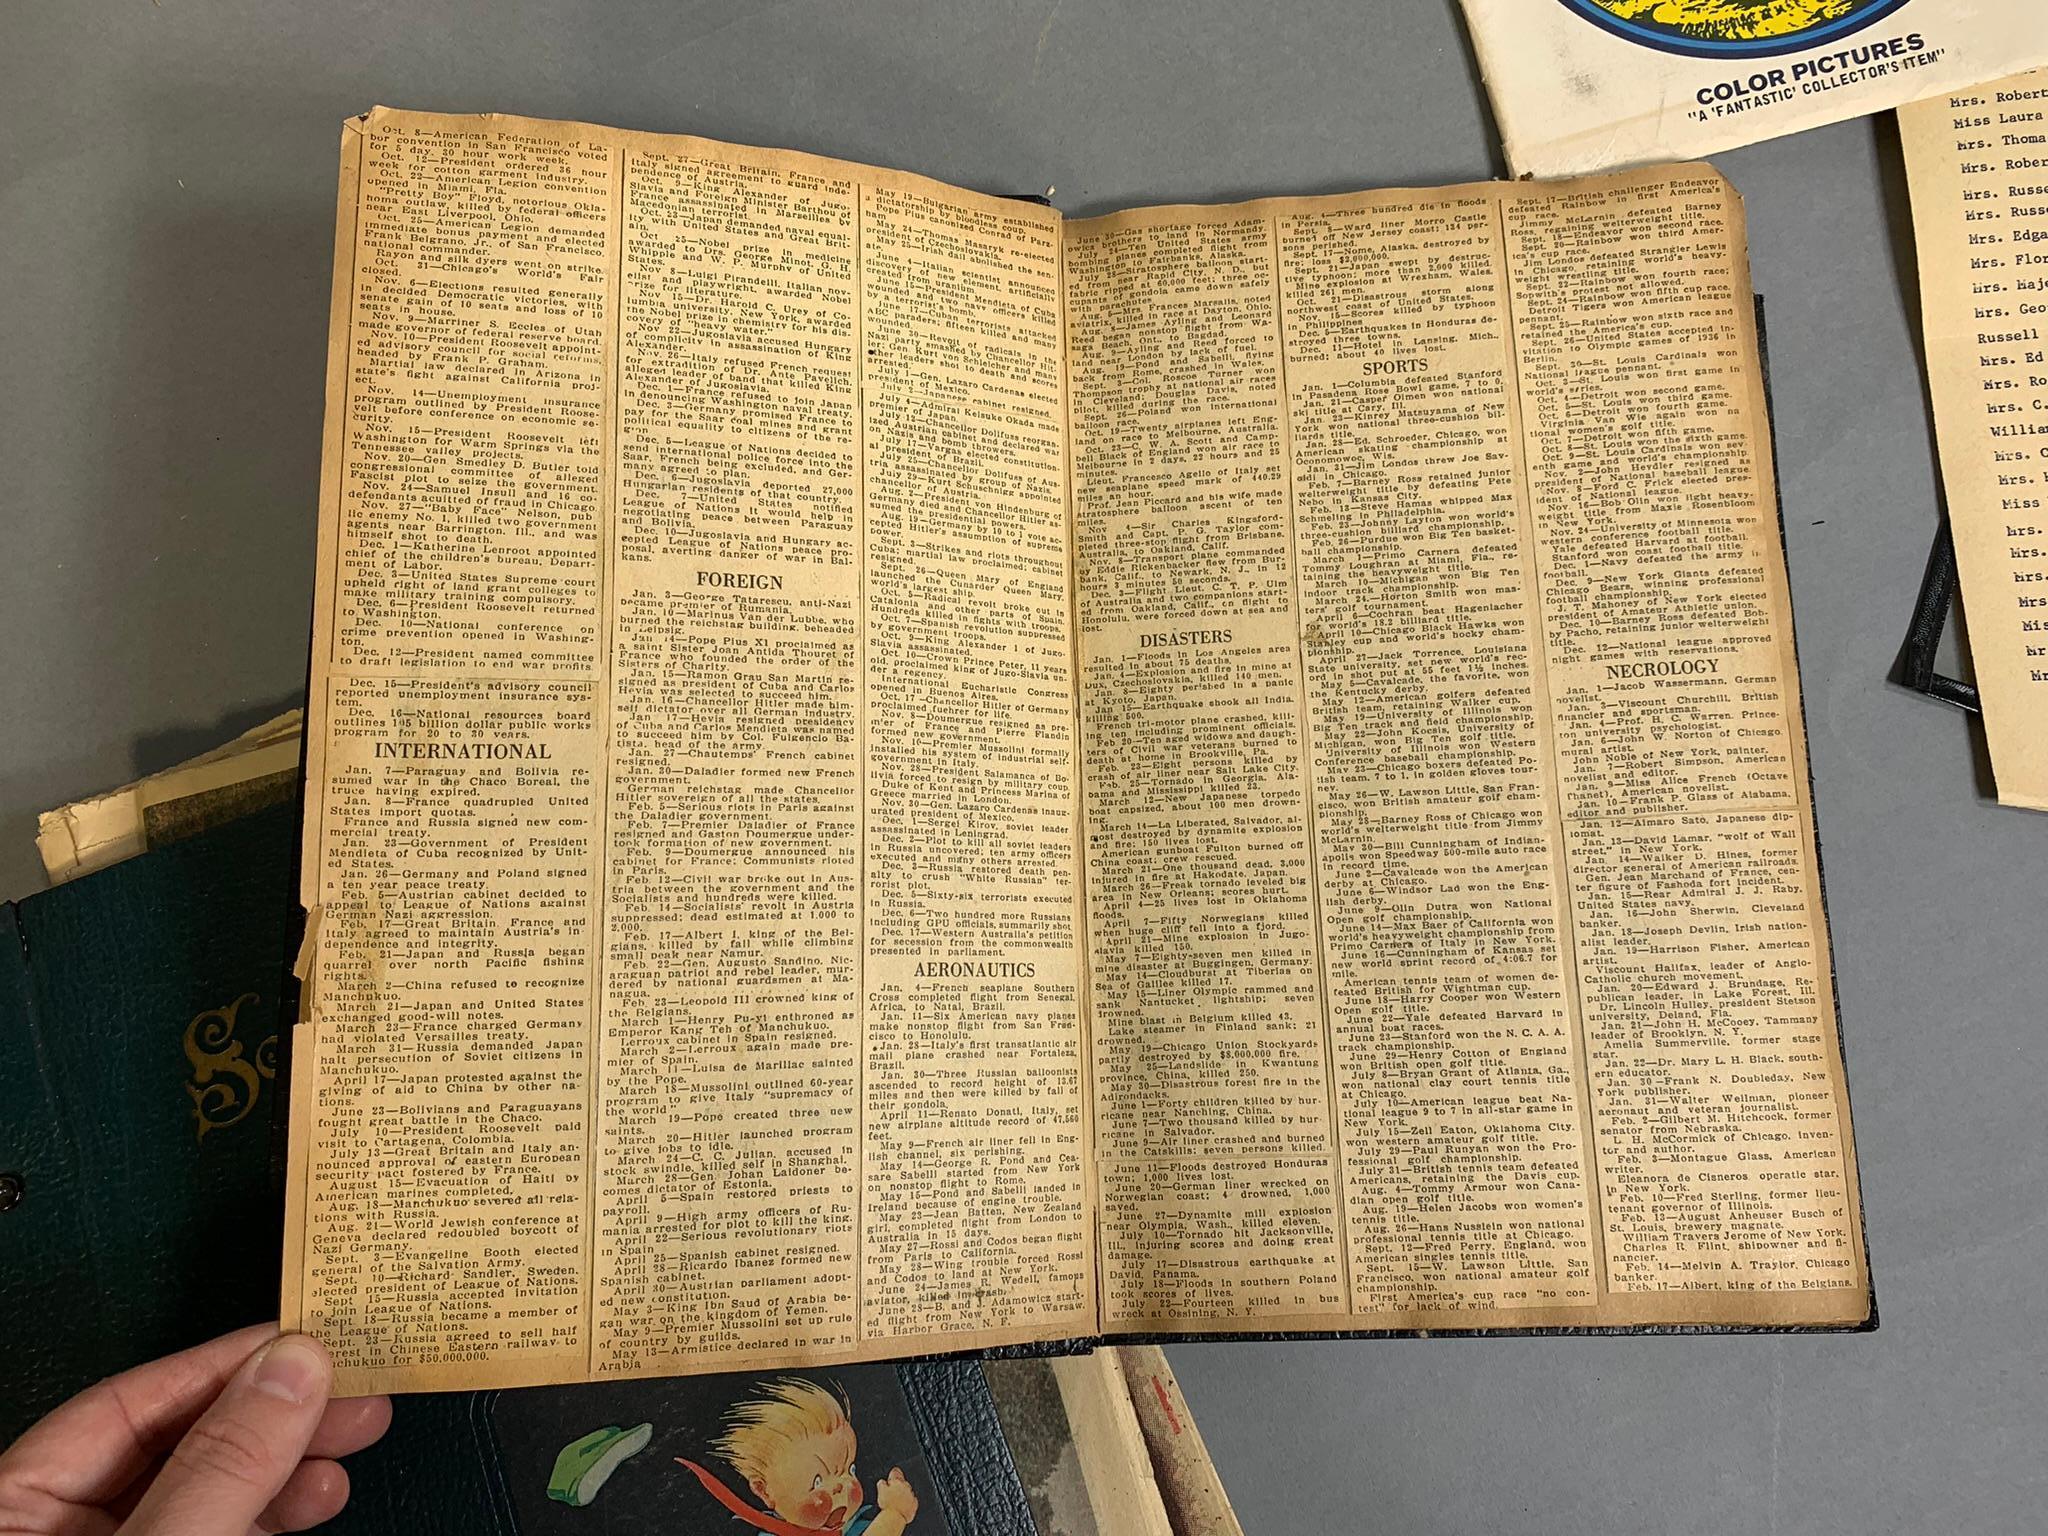 Oct. 8—American Federation of La-
bor convention in San Francisco voted
for 5 day, 30 hour work week.
Oct. 12—President ordered 36 hour
week for cotton garment industry.
Oct. 22—American Legion convention
opened in Miami, Fla.
"Pretty Boy" Floyd, notorious Okla-
homa outlaw, killed by federal officers
near East Liverpool, Ohio.
Oct. 25—American Legion demanded
immediate bonus payment and elected
Frank Belgrano, Jr., of San Francisco,
national commander.
Rayon and silk dyers went on strike.
Oct. 31—Chicago's World's Fair
closed.
Nov. 6—Elections resulted generally
in decided Democratic victories, with
senate gain of 10 seats and loss of 10
seats in house.
Nov. 9—Marriner S. Eccles of Utah
made governor of federal reserve board.
Nov. 10—President Roosevelt appoint-
ed advisory council for social reforms,
headed by Frank P. Graham.
Martial law declared in Arizona in
state's fight against California proj-
ect.
Nov. 14—Unemployment insurance
program outlined by President Roose-
velt before conference on economic se-
curity.
Nov. 15—President Roosevelt left
Washington for Warm Springs via the
Tennessee valley projects.
Nov. 20—Gen Smedley D. Butler told
congressional committee of alleged
Fascist plot to seize the government.
Nov. 24—Samuel Insull and 16 co-
defendants acquitted of fraud in Chicago.
Nov. 27—"Baby Face" Nelson, pub-
lic enemy No. 1, killed two government
agents near Barrington, Ill., and was
himself shot to death.
Dec. 1—Katherine Lenroot appointed
chief of the children's bureau, Depart-
ment of Labor.
Dec. 3—United States Supreme court
upheld right of land grant colleges to
make military training compulsory.
Dec. 6—President Roosevelt returned
to Washington.
Dec. 10—National conference on
crime prevention opened in Washing-
ton.
Dec. 12—President named committee
to draft legislation to end war profits.
Dec. 15—President's advisory council
reported unemployment insurance sys-
tem.
Dec. 16—National resources board
outlines 105 billion dollar public works
program for 20 to 30 years.
INTERNATIONAL
Jan. 7—Paraguay and Bolivia re-
sumed war in the Chaco Boreal, the
truce having expired.
Jan. 8—France quadrupled United
States import quotas.
France and Russia signed new com-
mercial treaty.
Jan. 23—Government of President
Mendieta of Cuba recognized by Unit-
ed States.
Jan. 26—Germany and Poland signed
a ten year peace treaty.
Feb. 5—Austrian cabinet decided to
appeal to League of Nations against
German Nazi aggression.
Feb. 17—Great Britain, France and
Italy agreed to maintain Austria's in-
dependence and integrity.
Feb. 21—Japan and Russia began
quarrel over north Pacific fishing
rights.
March 2—China refused to recognize
Manchukuo.
March 21—Japan and United States
exchanged good-will notes.
March 23—France charged Germany
had violated Versailles treaty.
March 31—Russia demanded Japan
halt persecution of Soviet citizens in
Manchukuo.
April 17—Japan protested against the
giving of aid to China by other na-
tions.
June 23—Bolivians and Paraguayans
fought great battle in the Chaco.
July 10—President Roosevelt paid
visit to Cartagena, Colombia.
July 13—Great Britain and Italy an-
nounced approval of eastern European
security pact fostered by France.
August 15—Evacuation of Haiti by
American marines completed.
Aug. 18—Manchukuo severed all rela-
tions with Russia.
Aug. 21—World Jewish conference at
Geneva declared redoubled boycott of
Nazi Germany.
Sept. 3—Evangeline Booth elected
general of the Salvation Army.
Sept. 10—Richard Sandler, Sweden,
elected president of League of Nations.
Sept 15—Russia accepted invitation
to join League of Nations.
Sept. 18—Russia became a member of
the League of Nations.
Sept. 23—Russia agreed to sell half
erest in Chinese Eastern railway to
nchukuo for $50,000,000.
Sept. 27—Great Britain, France and
Italy signed agreement to guard inde-
pendence of Austria.
Oct. 9—King Alexander of Jugo-
Slavia and Foreign Minister Barthou of
France assassinated in Marseilles by
Macedonian terrorist.
Oct. 23—Japan demanded naval equal-
ity with United States and Great Brit-
ain.
Oct. 25—Nobel prize in medicine
awarded Drs. George Minot, G. H.
Whipple and W. P. Murphy of United
States.
Nov 8—Luigi Pirandelli, Italian nov-
elist and playwright, awarded Nobel
prize for literature.
Nov 15—Dr. Harold C. Urey of Co-
lumbia university, New York, awarded
the Nobel prize in chemistry for his dis-
covery of "heavy water."
Nov 22—Jugoslavia accused Hungary
of complicity in assassination of King
Alexander.
Nov. 26—Italy refused French request
for extradition of Dr. Ante Pavelich,
alleged leader of band that killed King
Alexander of Jugoslavia.
Dec. 1—France refused to join Japan
in denouncing Washington naval treaty.
Dec. 3—Germany promised France to
pay for the Saar coal mines and grant
political equality to citizens of the re-
gion.
Dec. 5—League of Nations decided to
send international police force into the
Saar, French being excluded, and Ger-
many agreed to plan.
Dec. 6—Jugoslavia deported 27,000
Hungarian residents of that country.
Dec. 7—United States notified
League of Nations it would help in
negotiating peace between Paraguay
and Bolivia.
Dec. 10—Jugoslavia and Hungary ac-
cepted League of Nations peace pro-
posal, averting danger of war in Bal-
kans.
FOREIGN
Jan. 3—George Tatarescu, anti-Nazi
became premier of Rumania.
Jan. 10—Marinus Van der Lubbe, who
burned the reichstag building, beheaded
in Leipsig.
Jan 14—Pope Pius XI proclaimed as
a saint Sister Joan Antida Thouret of
France who founded the order of the
Sisters of Charity.
Jan. 15—Ramon Grau San Martin re-
signed as president of Cuba and Carlos
Hevia was selected to succeed him.
Jan. 16—Chancellor Hitler made him-
self dictator over all German industry.
Jan. 17—Hevia resigned presidency
of Cuba and Carlos Mendieta was named
to succeed him by Col. Fulgencio Ba-
tista, head of the army.
Jan. 27—Chautemps' French cabinet
resigned.
Jan. 30—Daladier formed new French
government.
German reichstag made Chancellor
Hitler sovereign of all the states.
Feb. 5—Serious riots in Paris against
the Daladier government.
Feb. 7—Premier Daladier of France
resigned and Gaston Doumergue under-
took formation of new government.
Feb. 9—Doumergue announced his
cabinet for France; Communists rioted
in Paris.
Feb. 12—Civil war broke out in Aus-
tria between the government and the
Socialists and hundreds were killed.
Feb. 14—Socialists' revolt in Austria
suppressed; dead estimated at 1,000 to
2,000.
Feb. 17—Albert I, king of the Bel-
gians, killed by fall while climbing
small peak near Namur.
Feb. 22—Gen. Augusto Sandino, Nic-
araguan patriot and rebel leader, mur-
dered by national guardsmen at Ma-
nagua.
Feb. 23—Leopold III crowned king of
the Belgians.
March 1—Henry Pu-yi enthroned as
Emperor Kang Teh of Manchukuo.
Lerroux cabinet in Spain resigned.
March 2—Lerroux again made pre-
mier of Spain.
March 11—Luisa de Marillac sainted
by the Pope.
March 18—Mussolini outlined 60-year
program to give Italy "supremacy of
the world".
March 19—Pope created three new
saints.
March 20—Hitler launched program
to give jobs to idle.
March 24—C. C. Julian, accused in
stock swindle, killed self in Shanghai.
March 28—Gen. Johan Laidoner be-
comes dictator of Estonia.
April 5—Spain restored priests to
payroll.
April 9—High army officers of Ru-
mania arrested for plot to kill the king.
April 22—Serious revolutionary riots
in Spain
April 25—Spanish cabinet resigned.
April 28—Ricardo Ibanez formed new
Spanish cabinet.
April 30—Austrian parliament adopt-
ed new constitution.
May 3—King Ibn Saud of Arabia be-
gan war on the kingdom of Yemen.
May 9—Premier Mussolini set up rule
of country by guilds.
May 13—Armistice declared in war in
Arabia
May 19—Bulgarian army established
dictatorship by bloodless coup.
Pope Pius canonized Conrad of Parz-
ham.
May 24—Thomas Masaryk re-elected
president of Czechoslovakia.
May 25—Irish dail abolished the sen-
ate.
June 4—Italian scientist announced
discovery of new element, artificially
created from uranium.
June 15—President Mendieta of Cuba
wounded and two navy officers killed
by a terrorist's bomb.
June 17—Cuban terrorists attacked
ABC paraders; fifteen killed and many
wounded.
June 30—Revolt of radicals in the
Nazi party smashed by Chancellor Hit-
ler; Gen Kurt von Schleicher and many
other leaders shot to death and scores
killed.
July 1—Gen. Lazaro Cardenas elected
president of Mexico.
July 3—Japanese cabinet resigned.
July 4—Admiral Keisuke Okada made
premier of Japan.
July 12—Chancellor Dollfuss reorgan-
ized Austrian cabinet and declared war
on Nazis and bomb throwers.
July 17—Vargas elected constitution-
al president of Brazil.
July 25—Chancellor Dollfuss of Aus-
tria assassinated by group of Nazis.
July 29—Kurt Schuschnigg appointed
chancellor of Austria.
Aug. 2—President Von Hindenburg of
Germany died and Chancellor Hitler as-
sumed the presidential powers.
Aug. 19—Germany by 10 to 1 vote ac-
cepted Hitler's assumption of supreme
power.
Sept. 3—Strikes and riots throughout
Cuba; martial law proclaimed; cabinet
resigned.
Sept. 26—Queen Mary of England
launched the Cunarder Queen Mary,
world's largest ship.
Oct. 5—Radical revolt broke out in
Catalonia and other parts of Spain.
Hundreds killed in fights with troops.
Oct. 7—Spanish revolution suppressed
by government troops.
Oct. 9—King Alexander 1 of Jugo-
Slavia assassinated.
Oct. 10—Crown Prince Peter, 11 years
old, proclaimed king of Jugo-Slavia un-
der a regency.
International Eucharistic Congress
opened in Buenos Aires.
Oct. 17—Chancellor Hitler of Germany
proclaimed fuehrer for life.
Nov. 8—Doumergue resigned as pre-
mier of France and Pierre Flandin
formed new government.
Nov. 10—Premier Mussolini formally
installed his system of industrial self-
government in Italy.
Nov. 28—President Salamanca of Bo-
livia forced to resign by military coup.
Duke of Kent and Princess Marina of
Greece married in London.
Nov. 30—Gen. Lazaro Cardenas inaug-
urated president of Mexico.
Dec. 1—Sergei Kirov, soviet leader
assassinated in Leningrad.
Dec. 2—Plot to kill all soviet leaders
in Russia uncovered; ten army officers
executed and many others arrested.
Dec. 3—Russia restored death pen-
alty to crush "White Russian" ter-
rorist plot.
Dec. 5—Sixty-six terrorists executed
in Russia.
Dec. 6—Two hundred more Russians
including GPU officials, summarily shot.
Dec. 17—Western Australia's petition
for secession from the commonwealth
presented in parliament.
AERONAUTICS
Jan. 4—French seaplane Southern
Cross completed flight from Senegal,
Africa, to Natal, Brazil.
Jan. 11—Six American navy planes
make nonstop flight from San Fran-
cisco to Honolulu.
Jan. 28—Italy's first transatlantic air
mail plane crashed near Fortaleza,
Brazil.
Jan. 30—Three Russian balloonists
ascended to record height of 13.67
miles and were killed by fall of
their gondola.
April 11—Renato Donati, Italy, set
new airplane altitude record of 47,560
feet.
May 9—French air liner fell in Eng-
lish channel, six perishing.
May 14—George R. Pond and Cea-
sare Sabelli started from New York
on nonstop flight to Rome.
May 15—Pond and Sabelli landed in
Ireland because of engine trouble.
May 23—Jean Batten, New Zealand
girl, completed flight from London to
Australia in 15 days.
May 27—Rossi and Codos began flight
from Paris to California.
May 28—Wing trouble forced Rossi
and Codos to land at New York.
June 24—James R. Wedell, famous
aviator, killed in crash.
June 28—B. and J. Adamowicz start-
ed flight from New York to Warsaw,
via Harbor Grace, N. F.
June 30—Gas shortage forced Adam-
owicz brothers to land in Normandy.
July 24—Ten United States army
bombing planes completed flight from
Washington to Fairbanks, Alaska.
July 28—Stratosphere balloon start-
ed from near Rapid City, N. D., but
fabric ripped at 60,000 feet; three oc-
cupants of gondola came down safely
with parachutes.
Aug. 5—Mrs. Frances Marsalis, noted
aviatrix, killed in race at Dayton, Ohio.
Aug. 8—James Ayling and Leonard
Reed began nonstop flight from Wa-
saga Beach, Ont., to Bagdad.
Aug. 9—Ayling and Reed forced to
land near London by lack of fuel.
Aug. 19—Pond and Sabelli, flying
back from Rome, crashed in Wales.
Sept. 3—Col. Roscoe Turner won
Thompson trophy at national air races
in Cleveland; Douglas Davis, noted
pilot, killed during the race.
Sept. 26—Poland won international
balloon race.
Oct. 19—Twenty airplanes left Eng-
land on race to Melbourne, Australia.
Oct. 23—C. W. A. Scott and Camp-
bell Black of England won air race to
Melbourne in 2 days, 22 hours and 25
minutes.
Lieut. Francesco Agello of Italy set
new seaplane speed mark of 440.29
miles an hour.
Prof. Jean Piccard and his wife made
stratosphere balloon ascent of ten
miles.
Nov 4—Sir Charles Kingsford-
Smith and Capt. P. G. Taylor com-
pleted three-stop flight from Brisbane,
Australia, to Oakland, Calif.
Nov. 8—Transport plane commanded
by Eddie Rickenbacker flew from Bur-
bank, Calif., to Newark, N. J., in 12
hours 3 minutes 50 seconds.
Dec. 3—Flight Lieut. C. T. P. Ulm
of Australia and two companions start-
ed from Oakland, Calif., on flight to
Honolulu, were forced down at sea and
lost.
DISASTERS
Jan. 1—Floods in Los Angeles area
resulted in about 75 deaths.
Jan. 4—Explosion and fire in mine at
Dux, Czechoslovakia, killed 140 men.
Jan. 8—Eighty perished in a panic
at Kyoto, Japan.
Jan. 15—Earthquake shook all India,
killing 500.
French tri-motor plane crashed, kill-
ing ten including prominent officials.
Feb 20—Ten aged widows and daugh-
ters of Civil war veterans burned to
death at home in Brookville, Pa.
Feb. 22—Eight persons killed by
crash of air liner near Salt Lake City.
Feb. 25—Tornado in Georgia, Ala-
bama and Mississippi killed 23.
March 12—New Japanese torpedo
boat capsized, about 100 men drown-
ing.
March 14—La Liberated, Salvador, al-
most destroyed by dynamite explosion
and fire; 150 lives lost.
American gunboat Fulton burned off
China coast; crew rescued.
March 21—One thousand dead, 3,000
injured in fire at Hakodate, Japan.
March 26—Freak tornado leveled big
area in New Orleans; scores hurt.
April 4—25 lives lost in Oklahoma
floods.
April 7—Fifty Norwegians killed
when huge cliff fell into a fjord.
April 21—Mine explosion in Jugo-
slavia killed 150.
May 7—Eighty-seven men killed in
mine disaster at Buggingen, Germany.
May 14—Cloudburst at Tiberias on
Sea of Galilee killed 17.
May 15—Liner Olympic rammed and
sank Nantucket lightship; seven
drowned.
Mine blast in Belgium killed 43.
Lake steamer in Finland sank; 21
drowned.
May 19—Chicago Union Stockyards
partly destroyed by $8,000,000 fire.
May 25—Landslide in Kwantung
province, China, killed 250.
May 30—Disastrous forest fire in the
Adirondacks.
June 1—Forty children killed by hur-
ricane near Nanching, China.
June 7—Two thousand killed by hur-
ricane in Salvador.
June 9—Air liner crashed and burned
in the Catskills; seven persons killed.
June 11—Floods destroyed Honduras
town; 1,000 lives lost.
June 20—German liner wrecked on
Norwegian coast; 4 drowned, 1,000
saved.
June 27—Dynamite mill explosion
near Olympia, Wash., killed eleven.
July 10—Tornado hit Jacksonville,
Ill., injuring scores and doing great
damage.
July 17—Disastrous earthquake at
David, Panama.
July 18—Floods in southern Poland
took scores of lives.
July 22—Fourteen killed in bus
wreck at Ossining, N. Y.
Aug. 4—Three hundred die in floods
Persia.
Sept. 8—Ward liner Morro Castle
burned off New Jersey coast; 134 per-
sons perished.
Sept. 17—Nome, Alaska, destroyed by
fire; loss $2,000,000.
Sept. 21—Japan swept by destruc-
tive typhoon; more than 2,000 killed.
Mine explosion at Wrexham, Wales,
killed 261 men.
Oct. 21—Disastrous storm along
northwest coast of United States.
Nov. 15—Scores killed by typhoon
in Philippines
Dec. 5—Earthquakes in Honduras de-
stroyed three towns.
Dec. 11—Hotel in Lansing, Mich.,
burned; about 40 lives lost.
SPORTS
Jan. 1—Columbia defeated Stanford
in Pasadena Rose Bowl game, 7 to 0.
Jan. 21—Casper Oimen won national
ski title at Cary, Ill.
Jan. 23—Kinrey Matsuyama of New
York won national three-cushion bil-
liards title.
Jan. 28—Ed. Schroeder, Chicago, won
American skating championship at
Oconomowoc, Wis.
Jan. 31—Jim Londos threw Joe Sav-
oldi in Chicago.
Feb. 7—Barney Ross retained junior
welterweight title by defeating Pete
Nebo in Kansas City.
Feb. 13—Steve Hamas whipped Max
Schmeling in Philadelphia.
Feb. 23—Johnny Layton won world's
three-cushion billiard championship.
Feb. 26—Purdue won Big Ten basket-
ball championship.
March 1—Primo Carnera defeated
Tommy Loughran at Miami, Fla., re-
taining the heavyweight title.
March 10—Michigan won Big Ten
indoor track championship.
March 24.—Horton Smith won mas-
ters' golf tournament.
April 6—Cochran beat Hagenlacher
for world's 18.2 billiard title.
April 10—Chicago Black Hawks won
Stanley cup and world's hocky cham-
pionship.
April 27—Jack Torrence, Louisiana
State university, set new world's rec-
ord in shot put at 55 feet 1½ inches.
May 5—Cavalcade, the favorite, won
the Kentucky derby.
May 12—American golfers defeated
British team, retaining Walker cup.
May 19—University of Illinois won
Big Ten track and field championship.
May 22—John Kocsis, University of
Michigan, won Big Ten golf title.
University of Illinois won Western
Conference baseball championship.
May 23—Chicago boxers defeated Po-
lish team, 7 to 1, in golden gloves tour-
ney.
May 26—W. Lawson Little, San Fran-
cisco, won British amateur golf cham-
pionship.
May 28—Barney Ross of Chicago won
world's welterweight title from Jimmy
McLarnin.
May 30—Bill Cunningham of Indian-
apolis won Speedway 500-mile auto race
in record time.
June 2—Cavalcade won the American
derby at Chicago.
June 6—Windsor Lad won the Eng-
lish derby.
June 9—Olin Dutra won National
Open golf championship.
June 14—Max Baer of California won
world's heavyweight championship from
Primo Carnera of Italy in New York.
June 16—Cunningham of Kansas set
new world sprint record of 4:06.7 for
mile.
American team of women de-
feated British for Wightman cup.
June 18—Harry Cooper won Western
Open golf title.
June 22—Yale defeated Harvard in
annual boat races.
June 23—Stanford won the N. C. A. A.
track championship.
June 29—Henry Cotton of England
won British open golf title.
July 8—Bryan Grant of Atlanta, Ga.,
won national clay court tennis title
at Chicago.
July 10—American league beat Na-
tional league 9 to 7 in all-star game in
New York.
July 15—Zell Eaton, Oklahoma City,
won western amateur golf title.
July 29—Paul Runyan won the Pro-
fessional golf championship.
July 31—British tennis team defeated
Americans, retaining the Davis cup.
Aug. 4—Tommy Armour won Cana-
dian open golf title.
Aug. 19—Helen Jacobs won women's
tennis title.
Aug. 26—Hans Nusslein won national
professional tennis title at Chicago.
Sept. 12—Fred Perry, England, won
American singles tennis title.
Sept. 15—W. Lawson Little, San
Francisco, won national amateur golf
championship.
First America's cup race "no con-
test" for lack of wind.
Sept. 17—British challenger Endeavor
defeated Rainbow in first America's
cup race.
Jimmy McLarnin defeated Barney
Ross, regaining welterweight title.
Sept. 18—Endeavor won second race.
Sept. 20—Rainbow won third Amer-
ica's cup race.
Jim Londos defeated Strangler Lewis
in Chicago, retaining world's heavy-
weight wrestling title.
Sept. 22—Rainbow won fourth race;
Sopwith's protest not allowed.
Sept. 24—Rainbow won fifth cup race.
Detroit Tigers won American league
pennant.
Sept. 25—Rainbow won sixth race and
retained the America's cup.
Sept. 26—United States accepted in-
vitation to Olympic games of 1936 in
Berlin.
Sept. 30—St. Louis Cardinals won
National league pennant.
Oct. 3—St. Louis won first game in
world's series.
Oct. 4—Detroit won second game.
Oct. 5—St. Louis won third game.
Oct. 6—Detroit won fourth game.
Virginia Van Wie again won na
tional women's golf title.
Oct. 7—Detroit won fifth game.
Oct. 8—St. Louis won the sixth game.
Oct. 9—St. Louis Cardinals won sev-
enth game and world's championship.
Nov. 2—John Heydler resigned as
president of National baseball league.
Nov. 8—Ford C. Frick elected pres-
ident of National league.
Nov. 16—Bob Olin won light heavy-
weight title from Maxie Rosenbloom
in New York.
Nov. 24—University of Minnesota won
western conference football title.
Yale defeated Harvard at football.
Stanford won coast football title.
Dec. 1—Navy defeated the army in
football.
Dec. 9—New York Giants defeated
Chicago Bears, winning professional
football championship.
J. T. Mahoney of New York elected
president of Amateur Athletic union.
Dec. 10—Barney Ross defeated Bob-
by Pacho, retaining junior welterweight
title.
Dec. 12—National league approved
night games with reservations.
NECROLOGY
Jan. 1—Jacob Wassermann, German
novelist.
Jan. 3—Viscount Churchill, British
financier and sportsman.
Jan. 4—Prof. H. C. Warren, Prince-
ton university psychologist.
Jan. 6—John W. Norton of Chicago,
mural artist.
John Noble of New York, painter.
Jan. 7—Robert Simpson, American
novelist and editor.
Jan. 9—Miss Alice French (Octave
Thanet), American novelist.
Jan. 10—Frank P. Glass of Alabama,
editor and publisher.
Jan. 12—Aimaro Sato, Japanese dip-
lomat.
Jan. 13—David Lamar, "wolf of Wall
street," in New York.
Jan. 14—Walker D. Hines, former
director general of American railroads.
Gen. Jean Marchand of France, cen-
ter figure of Fashoda fort incident.
Jan. 15—Rear Admiral J. J. Raby,
United States navy.
Jan. 16—John Sherwin, Cleveland
banker.
Jan. 18—Joseph Devlin, Irish nation-
alist leader.
Jan. 19—Harrison Fisher, American
artist.
Viscount Halifax, leader of Anglo-
Catholic church movement.
Jan. 20—Edward J. Brundage, Re-
publican leader, in Lake Forest, Ill.
Dr. Lincoln Hulley, president Stetson
university, Deland, Fla.
Jan. 21—John H. McCooey, Tammany
leader of Brooklyn, N. Y.
Amelia Summerville, former stage
star.
Jan. 22—Dr. Mary L. H. Black, south-
ern educator.
Jan. 30—Frank N. Doubleday, New
York publisher.
Jan. 31—Walter Wellman, pioneer
aeronaut and veteran journalist.
Feb. 2—Gilbert M. Hitchcock, former
senator from Nebraska.
L. H. McCormick of Chicago, inven-
tor and author.
Feb. 3—Montague Glass, American
writer.
Eleanora de Cisneros, operatic star,
in New York.
Feb. 10—Fred Sterling, former lieu-
tenant governor of Illinois.
Feb. 13—August Anheuser Busch of
St. Louis, brewery magnate.
William Travers Jerome of New York.
Charles R. Flint, shipowner and fi-
nancier.
Feb. 14—Melvin A. Traylor, Chicago
banker.
Feb. 17—Albert, king of the Belgians.
COLOR PICTURES
"A 'FANTASTIC' COLLECTOR'S ITEM"
Mrs. Robert
Miss Laura
Mrs. Thoma
Mrs. Rober
Mrs. Russe
Mrs. Russe
Mrs. Edga
Mrs. Flor
Mrs. Maje
Mrs. Geo
Russell
Mrs. Ed
Mrs. Ro
Mrs. C.
Willia
Mrs. C
Mrs. H
Miss
Mrs.
Mrs.
Mrs.
Mrs
Mis
Mr
Mr